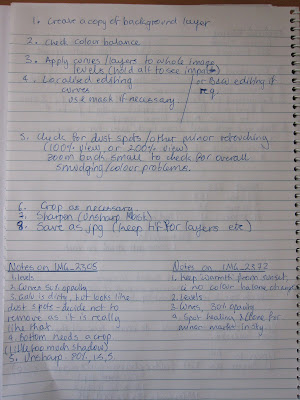 1. Create a copy of background layer
2. Check colour balance
3. Apply curves/layers to whole image
levels (hold alt to see impact)
4. Localised editing
curves
use mask if necessary
/or B&W editing if
req.
5. Check for dust spots/other minor retouching
(100% view, or 200% view)
zoom back small to check for overall
smudging/colour problems.
6. Crop as necessary
7. Sharpen (Unsharp Mask)
8. Save as jpg (keep tif for layers etc)
Notes on IMG_2305
1. levels
2. Curves 50% opacity
3. Gull is dirty, but looks like
dust spots - decide not to
remove as it is really
like that
4. Bottom needs a crop
(little too much shadow)
5. Unsharp 80%, 1.5, 5.
Notes on IMG_2372
1. Keep warmth from sunset,
ie no colour balance change
2. Levels
3. Curves, 30% opacity
4. Spot healing & clone for
minor marks